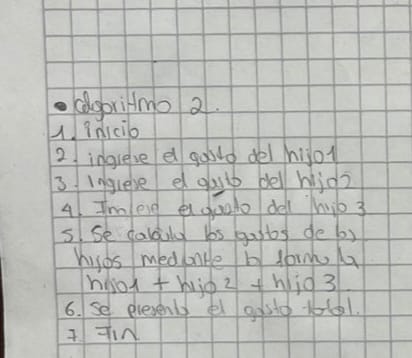 • algoritmo 2.
1. inicio
2. ingrese el gasto del hijo1
3. Ingrese el gasto del hijo2
4. el gasto del hijo 3
5. Se calcula los gastos de los
hijos mediante la formula
hijo1 + hijo2 + hijo3.
6. Se presenta el gasto total.
7. Fin